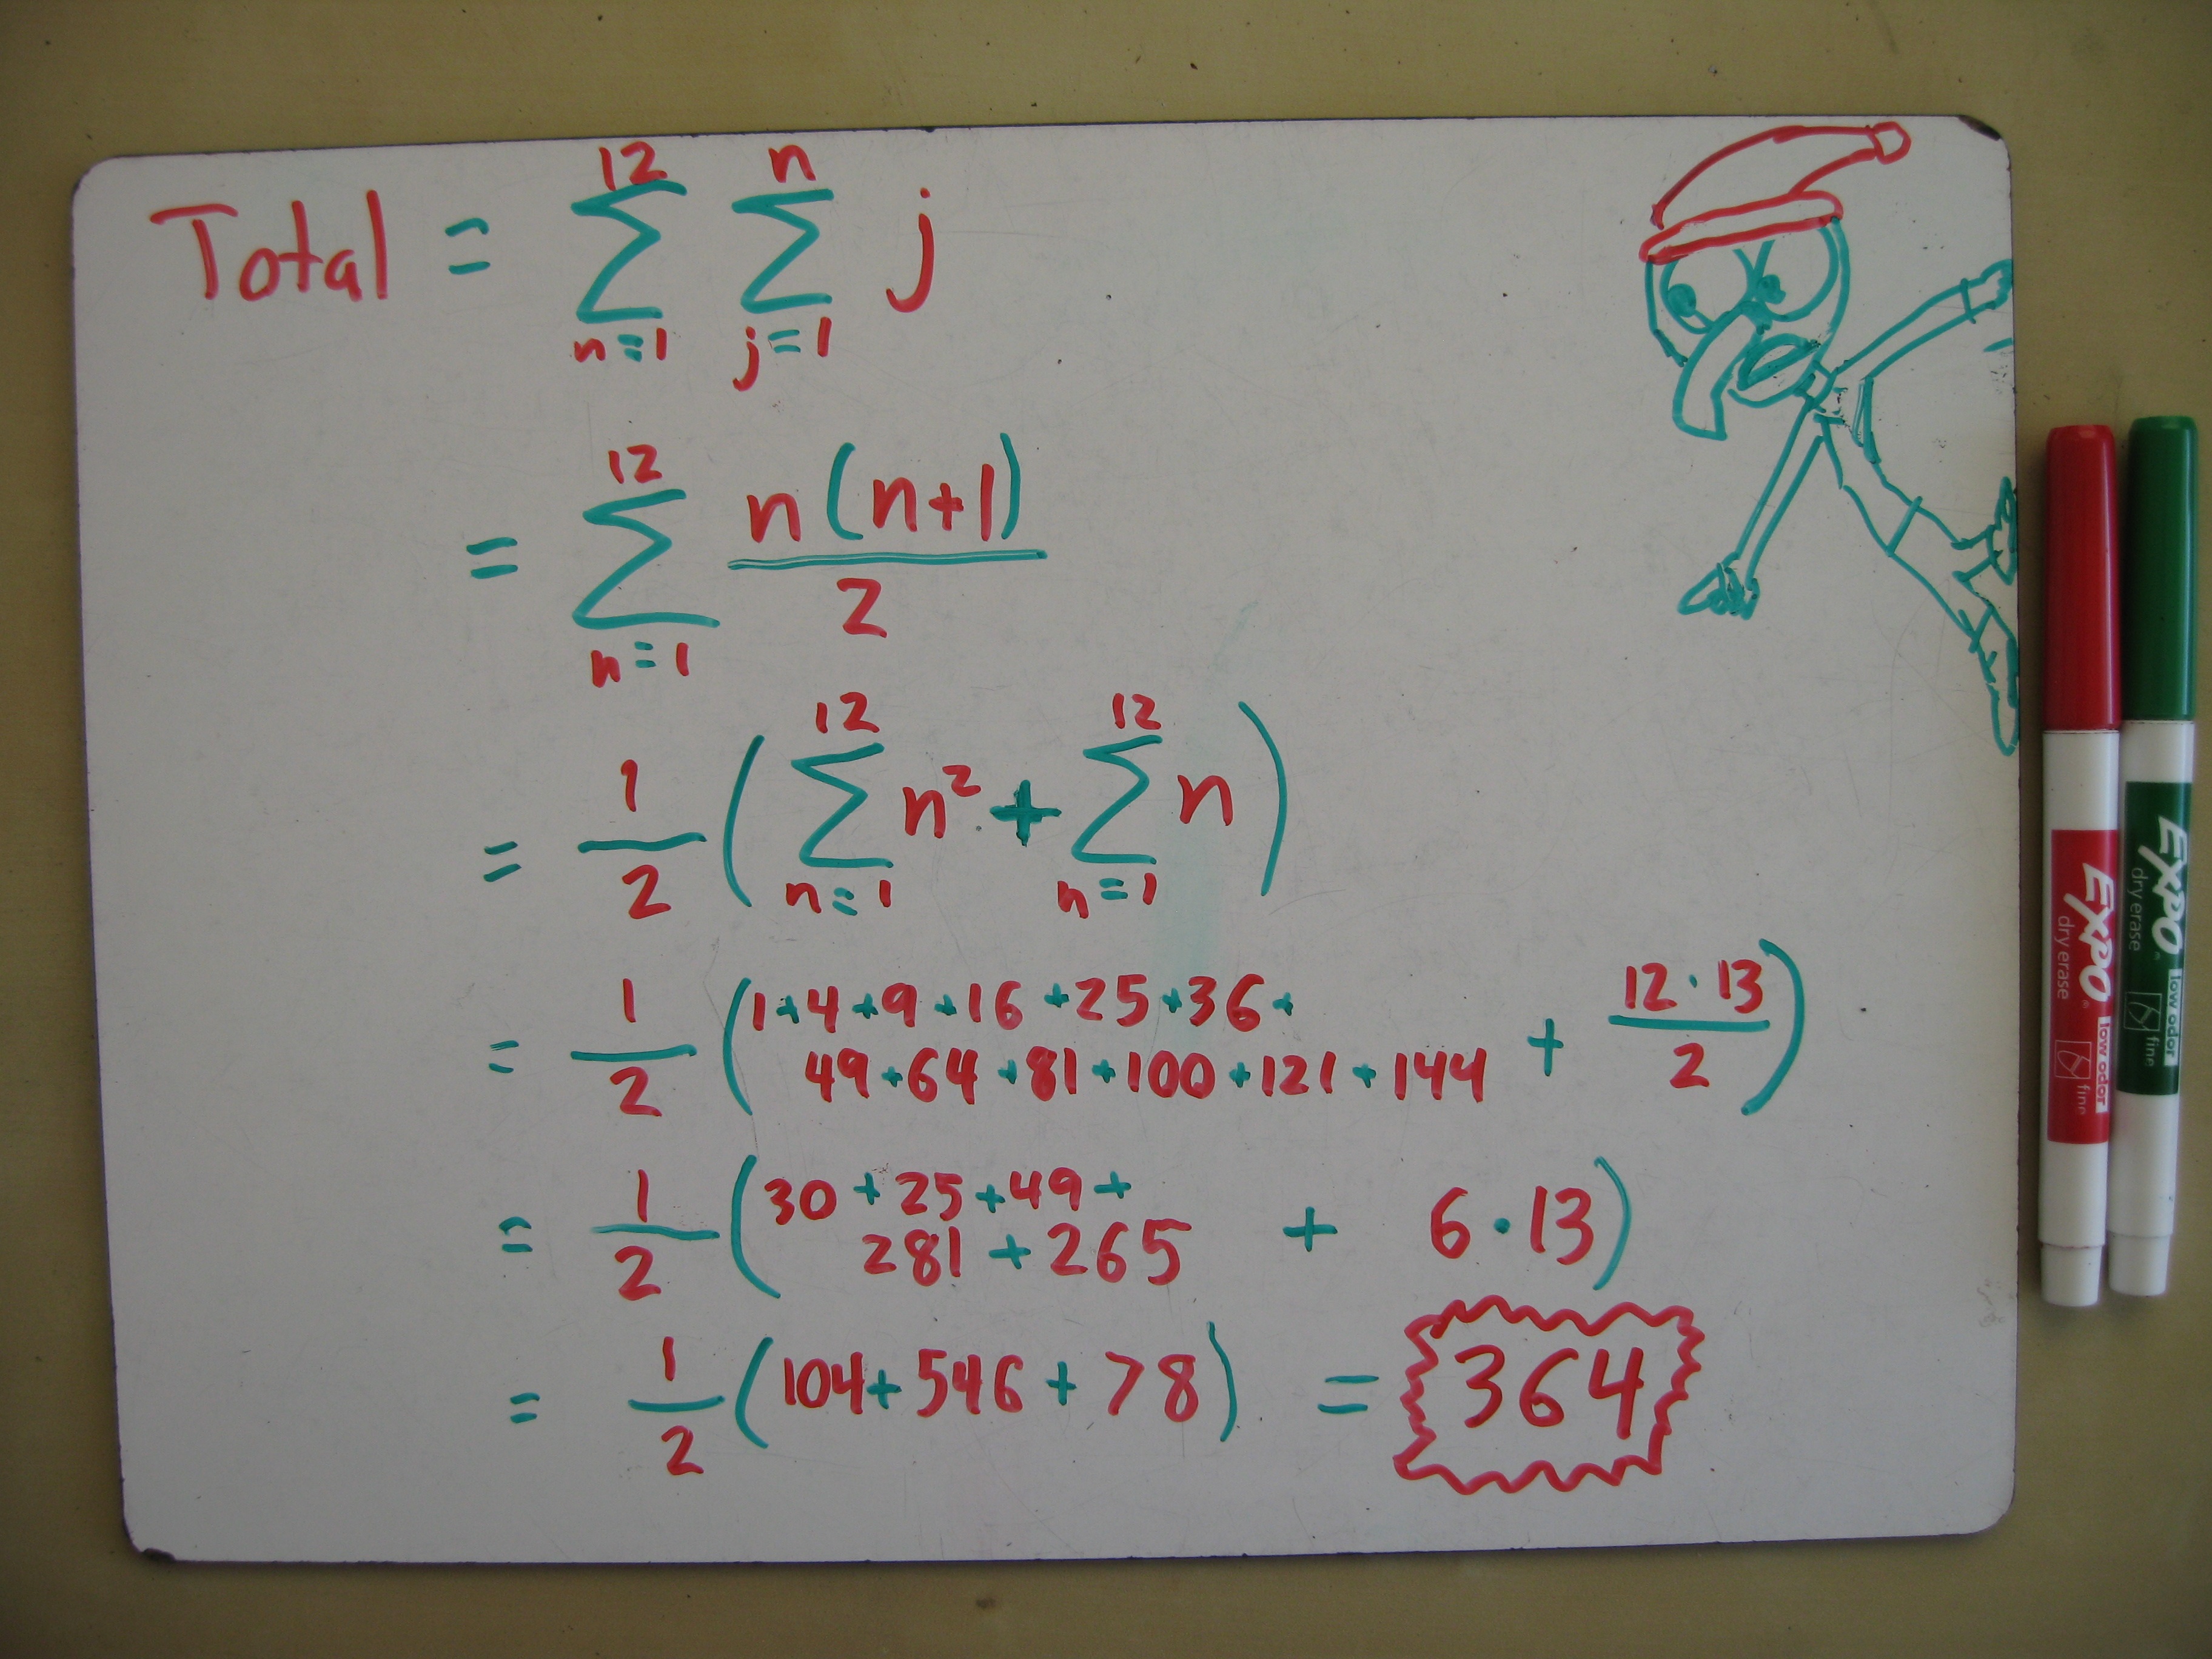 Total = 12 ∑ n=1 n ∑ j=1 j
= 12 ∑ n=1 n(n+1) / 2
= 1/2 ( 12 ∑ n=1 n² + 12 ∑ n=1 n )
= 1/2 ( 1+4+9+16+25+36+
49+64+81+100+121+144 + 12·13 / 2 )
= 1/2 ( 30+25+49+
281+265 + 6·13 )
= 1/2 ( 104+546+78 ) = 364
EXPO dry erase low odor fine
EXPO dry erase low odor fine